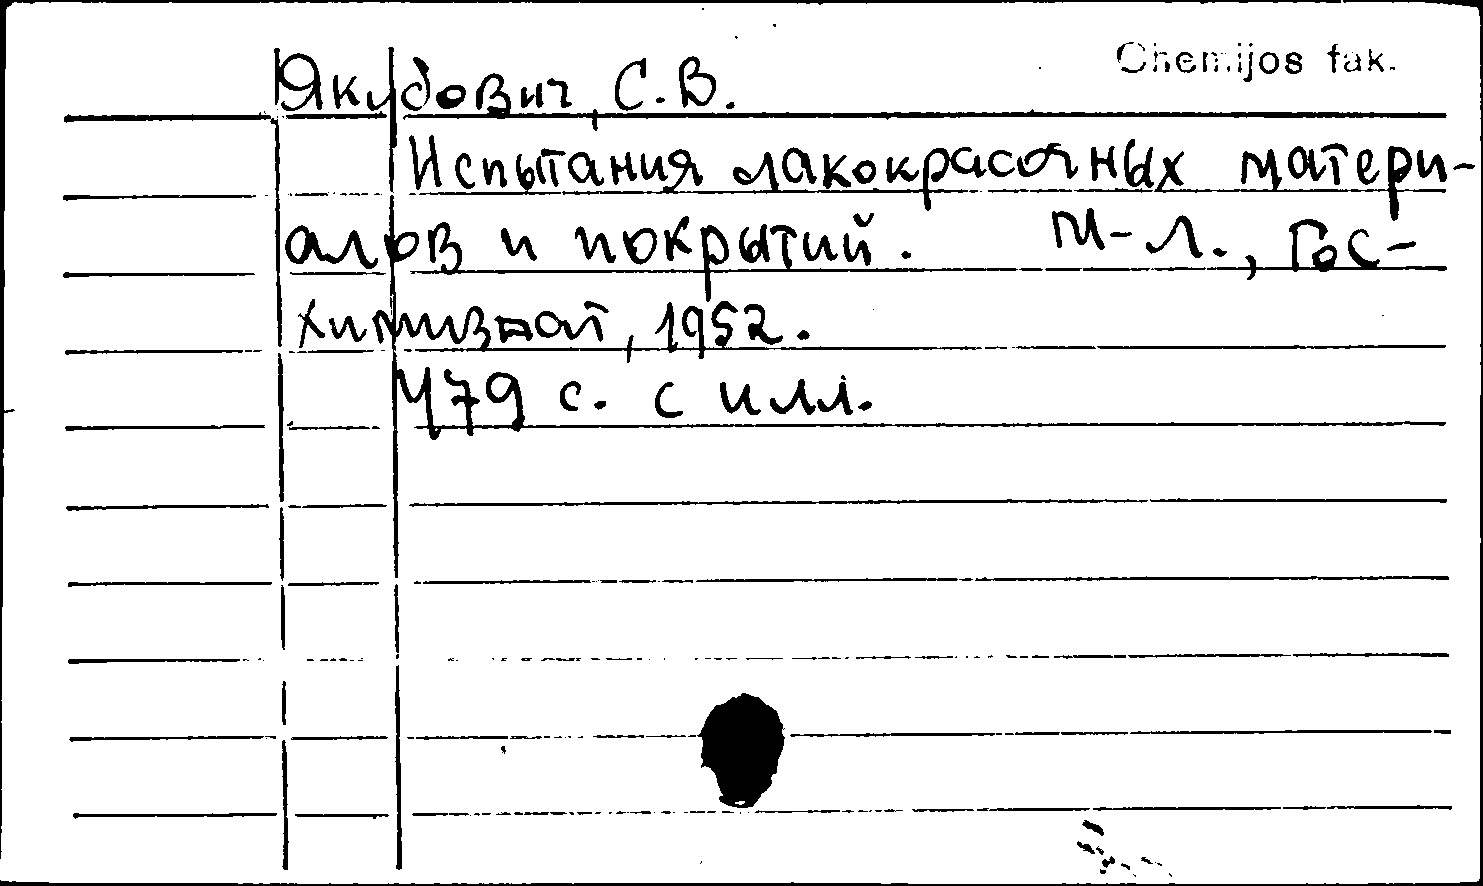 Chemijos fak.
Якубович, С.В.
Испытания лакокрасочных матери-
алов и покрытий. М-Л., Гос-
химиздат, 1952.
479 с. с илл.